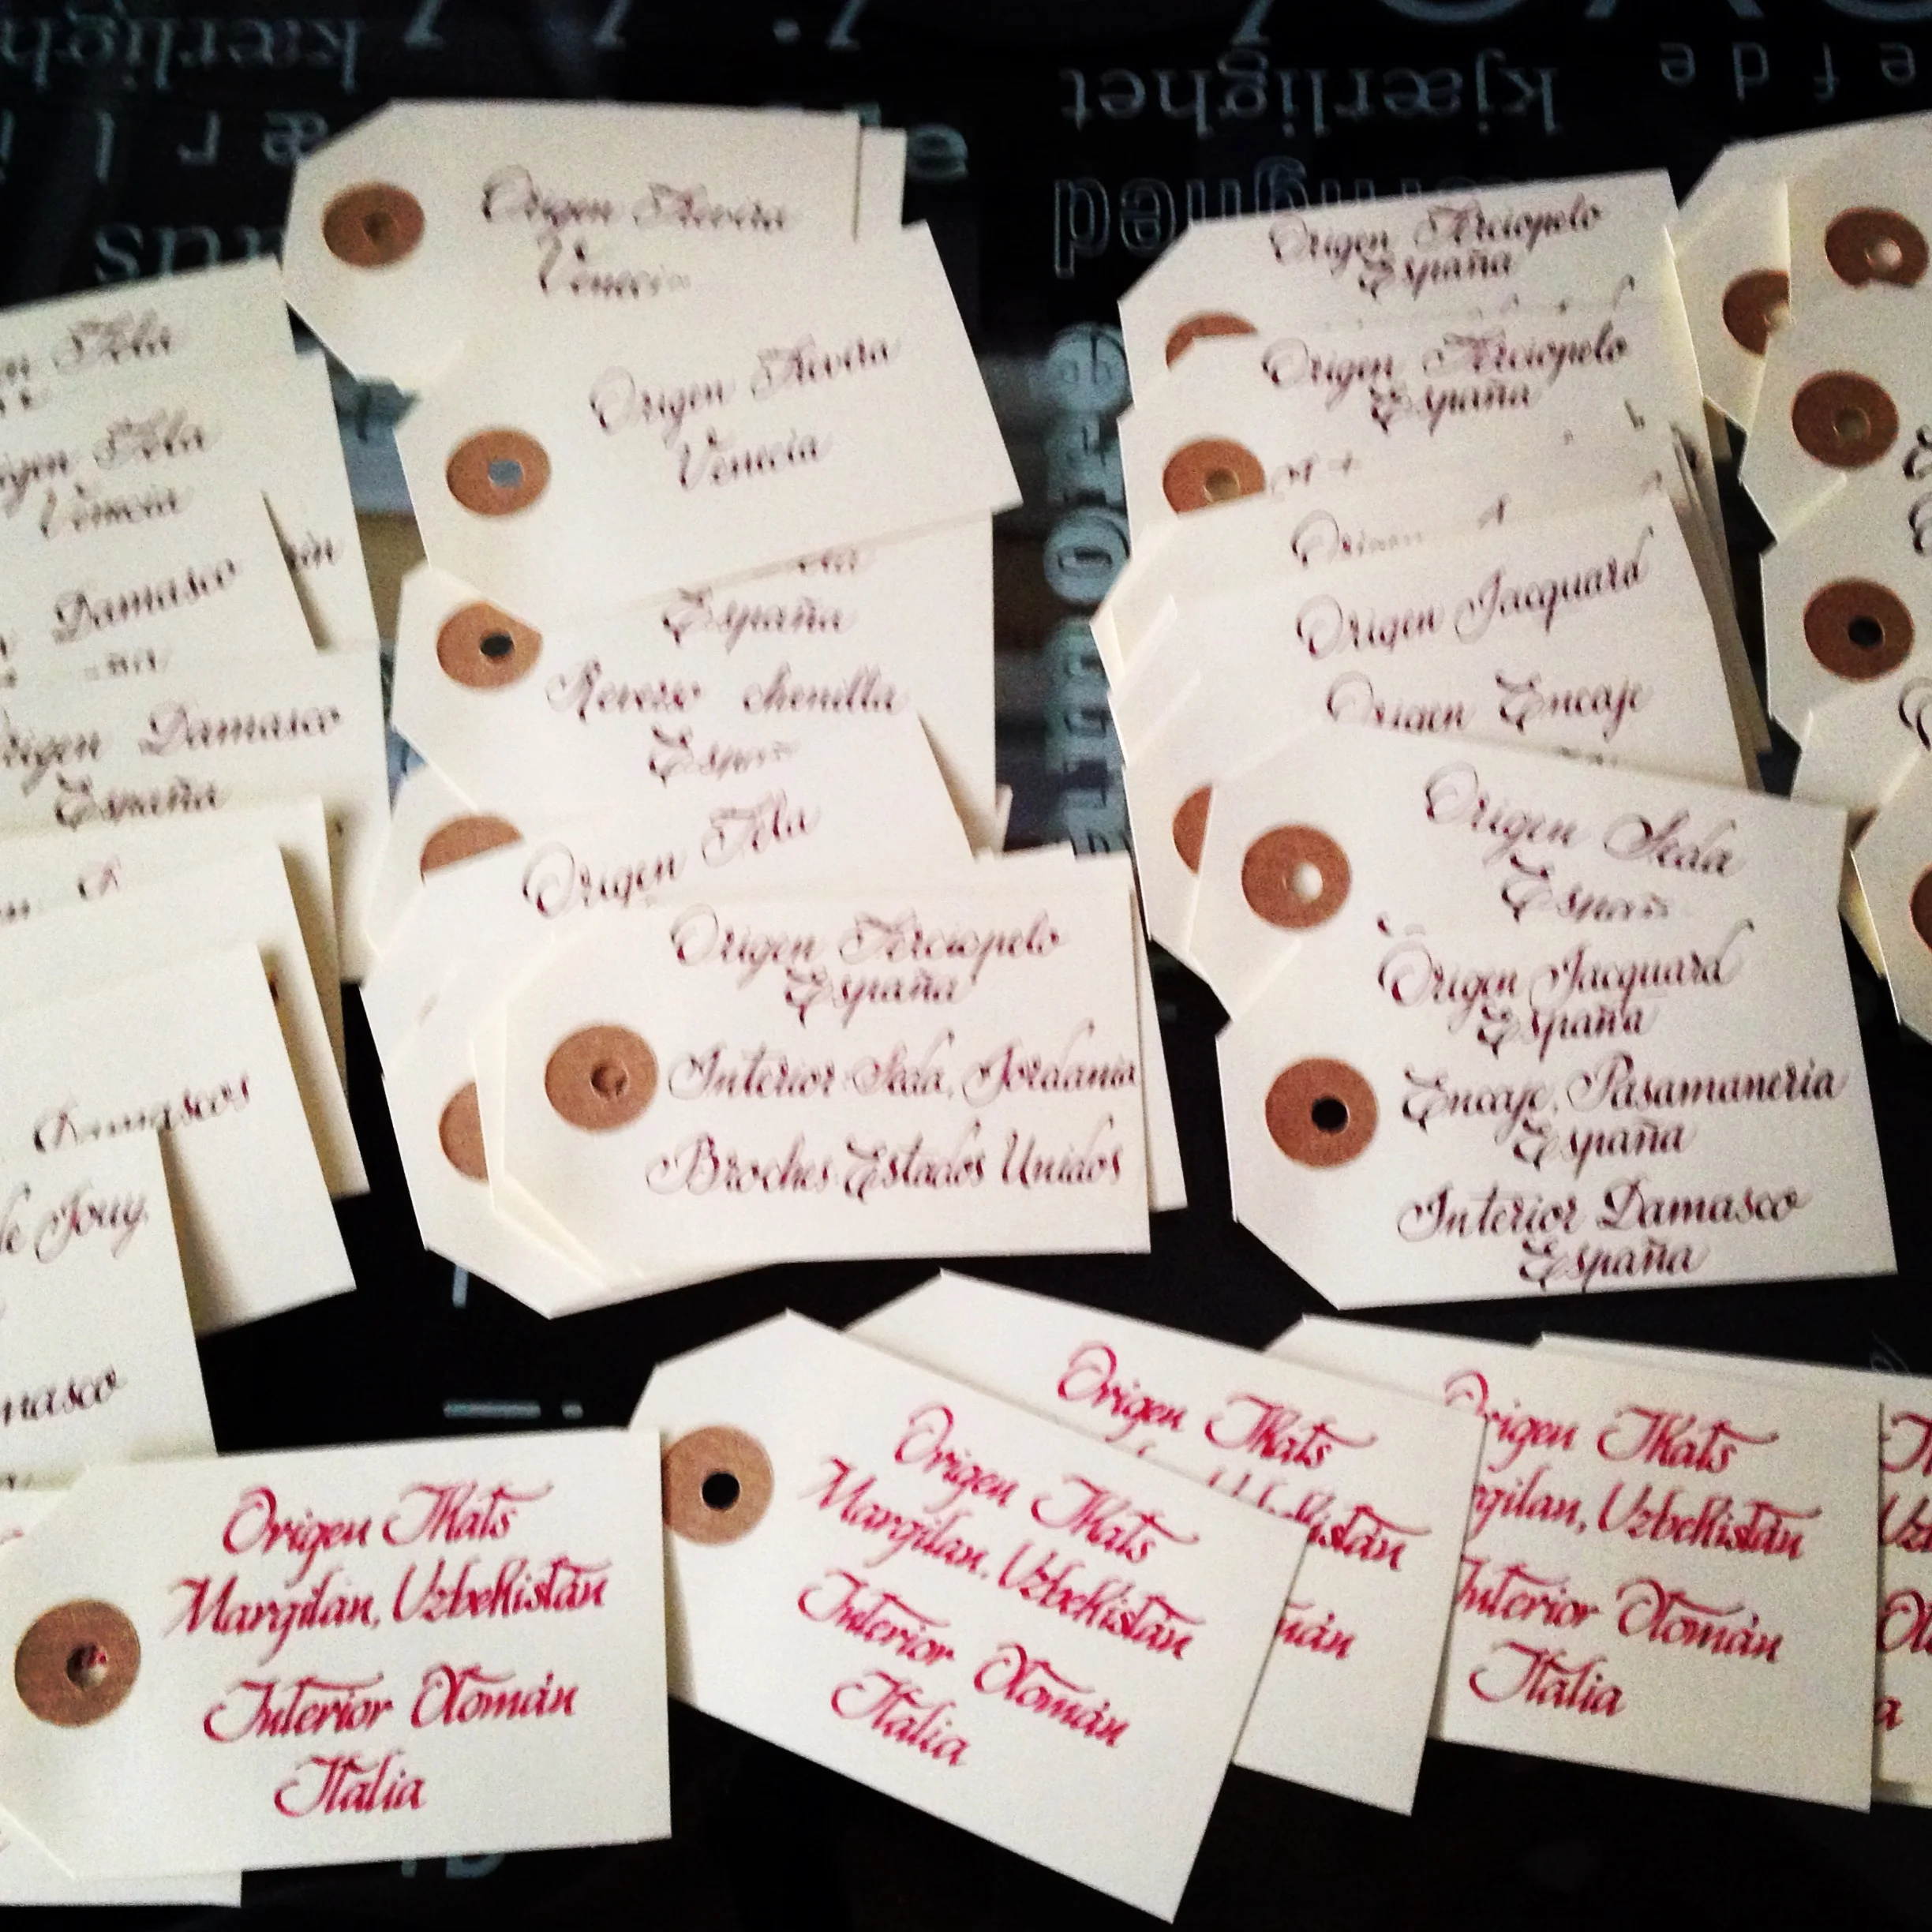 kærligh
kjærlighet
e f d e
Origen Trevira
Venecia
Origen Trevira
Venecia
España
Reverso chenilla
España
Origen Tela
Origen Terciopelo
España
Interior Seda, Jordania
Broches Estados Unidos
Tela
Origen Tela
Venecia
Damasco
Origen Damasco
España
Damascos
de Jouy.
Origen Terciopelo
España
Origen Terciopelo
España
Origen
Origen Jacquard
Origen Encaje
Origen Seda
España
Origen Jacquard
España
Encaje, Pasamaneria
España
Interior Damasco
España
Origen Ikats
Margilan, Uzbekistán
Interior Otomán
Italia
Origen Ikats
Margilan, Uzbekistán
Interior Otomán
Italia
Origen Ikats
Origen Ikats
rgilan, Uzbekistán
Interior Otomán
Italia